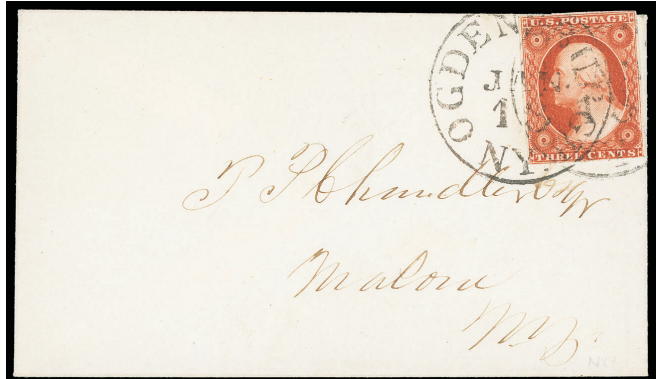 U.S. POSTAGE
THREE CENTS
OGDEN
JAN.
1
N.Y.
P P Chandler Esqr
Malone
NY